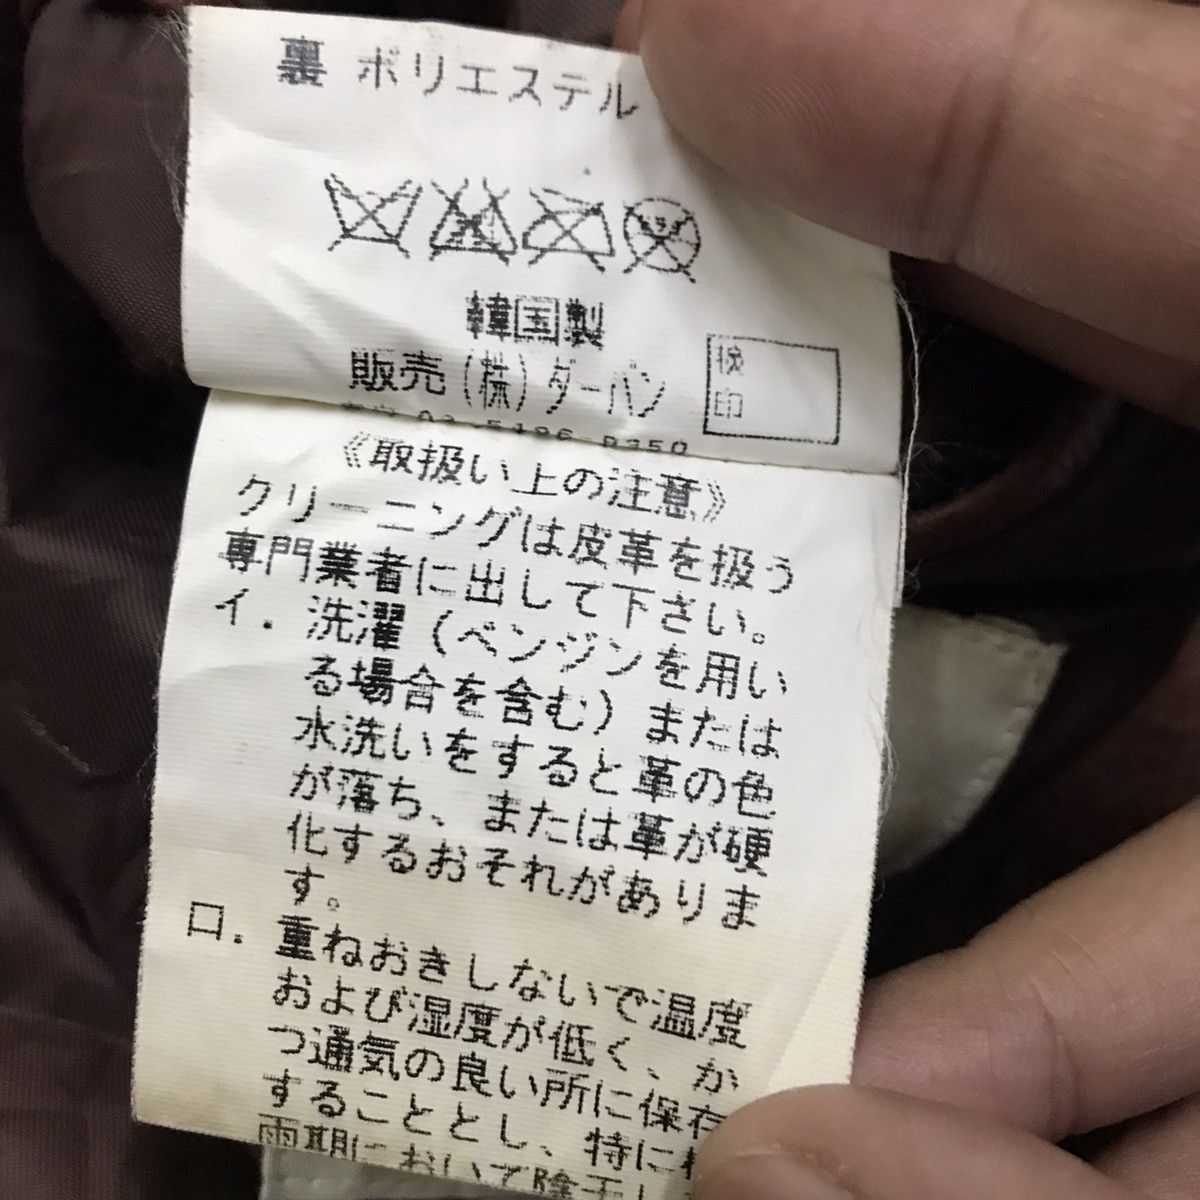 裏 ポリエステル
韓国製
販売(株)ダーバン
検
印
《取扱い上の注意》
クリーニングは皮革を扱う
専門業者に出して下さい。
イ．洗濯(ベンジンを用い
る場合を含む)または
水洗いをすると革の色
が落ち、または革が硬
化するおそれがありま
す。
ロ．重ねおきしないで温度
および湿度が低く、か
つ通気の良い所に保存
することとし、特に
雨期において陰干し